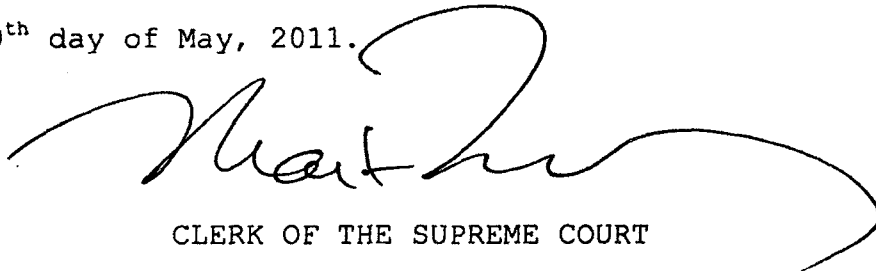 th day of May, 2011.
CLERK OF THE SUPREME COURT